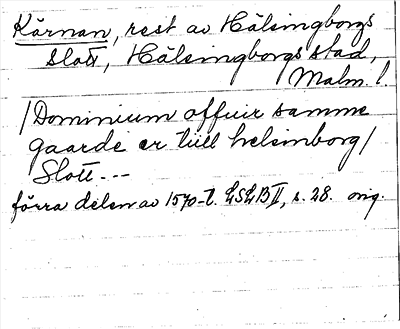 Kärnan, rest av Hälsingborgs
slott, Hälsingborgs stad,
Malm. l.
/Dominium offuir samme
gaarde er till helsinborg/
Slott---
förra delen av 1570-t. LSLB II, s. 28. orig.